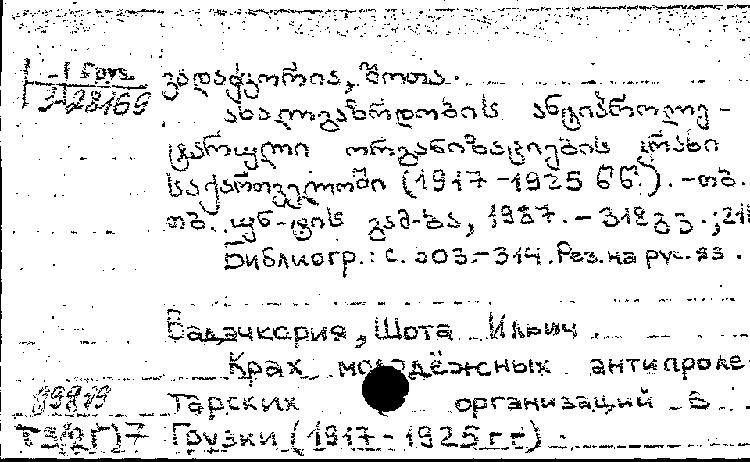 1-1 Груз
3-28169
ვადაჭკორია, შოთა.
ახალგაზრდობის ანტიპროლე-
ტარული ორგანიზაციების კრახი
საქართველოში (1917-1925 წწ.). - თბ.
თბ. უნ-ტის გამ-ბა, 1987. - 318გვ.; 21
Библиогр.: с. 303-314. Рез. на рус. яз.
Вадачкория, Шота Ильич.
Крах молодёжных антипроле
89819 тарских организаций в
Т3(2Г)7 Грузки (1917-1925 гг).